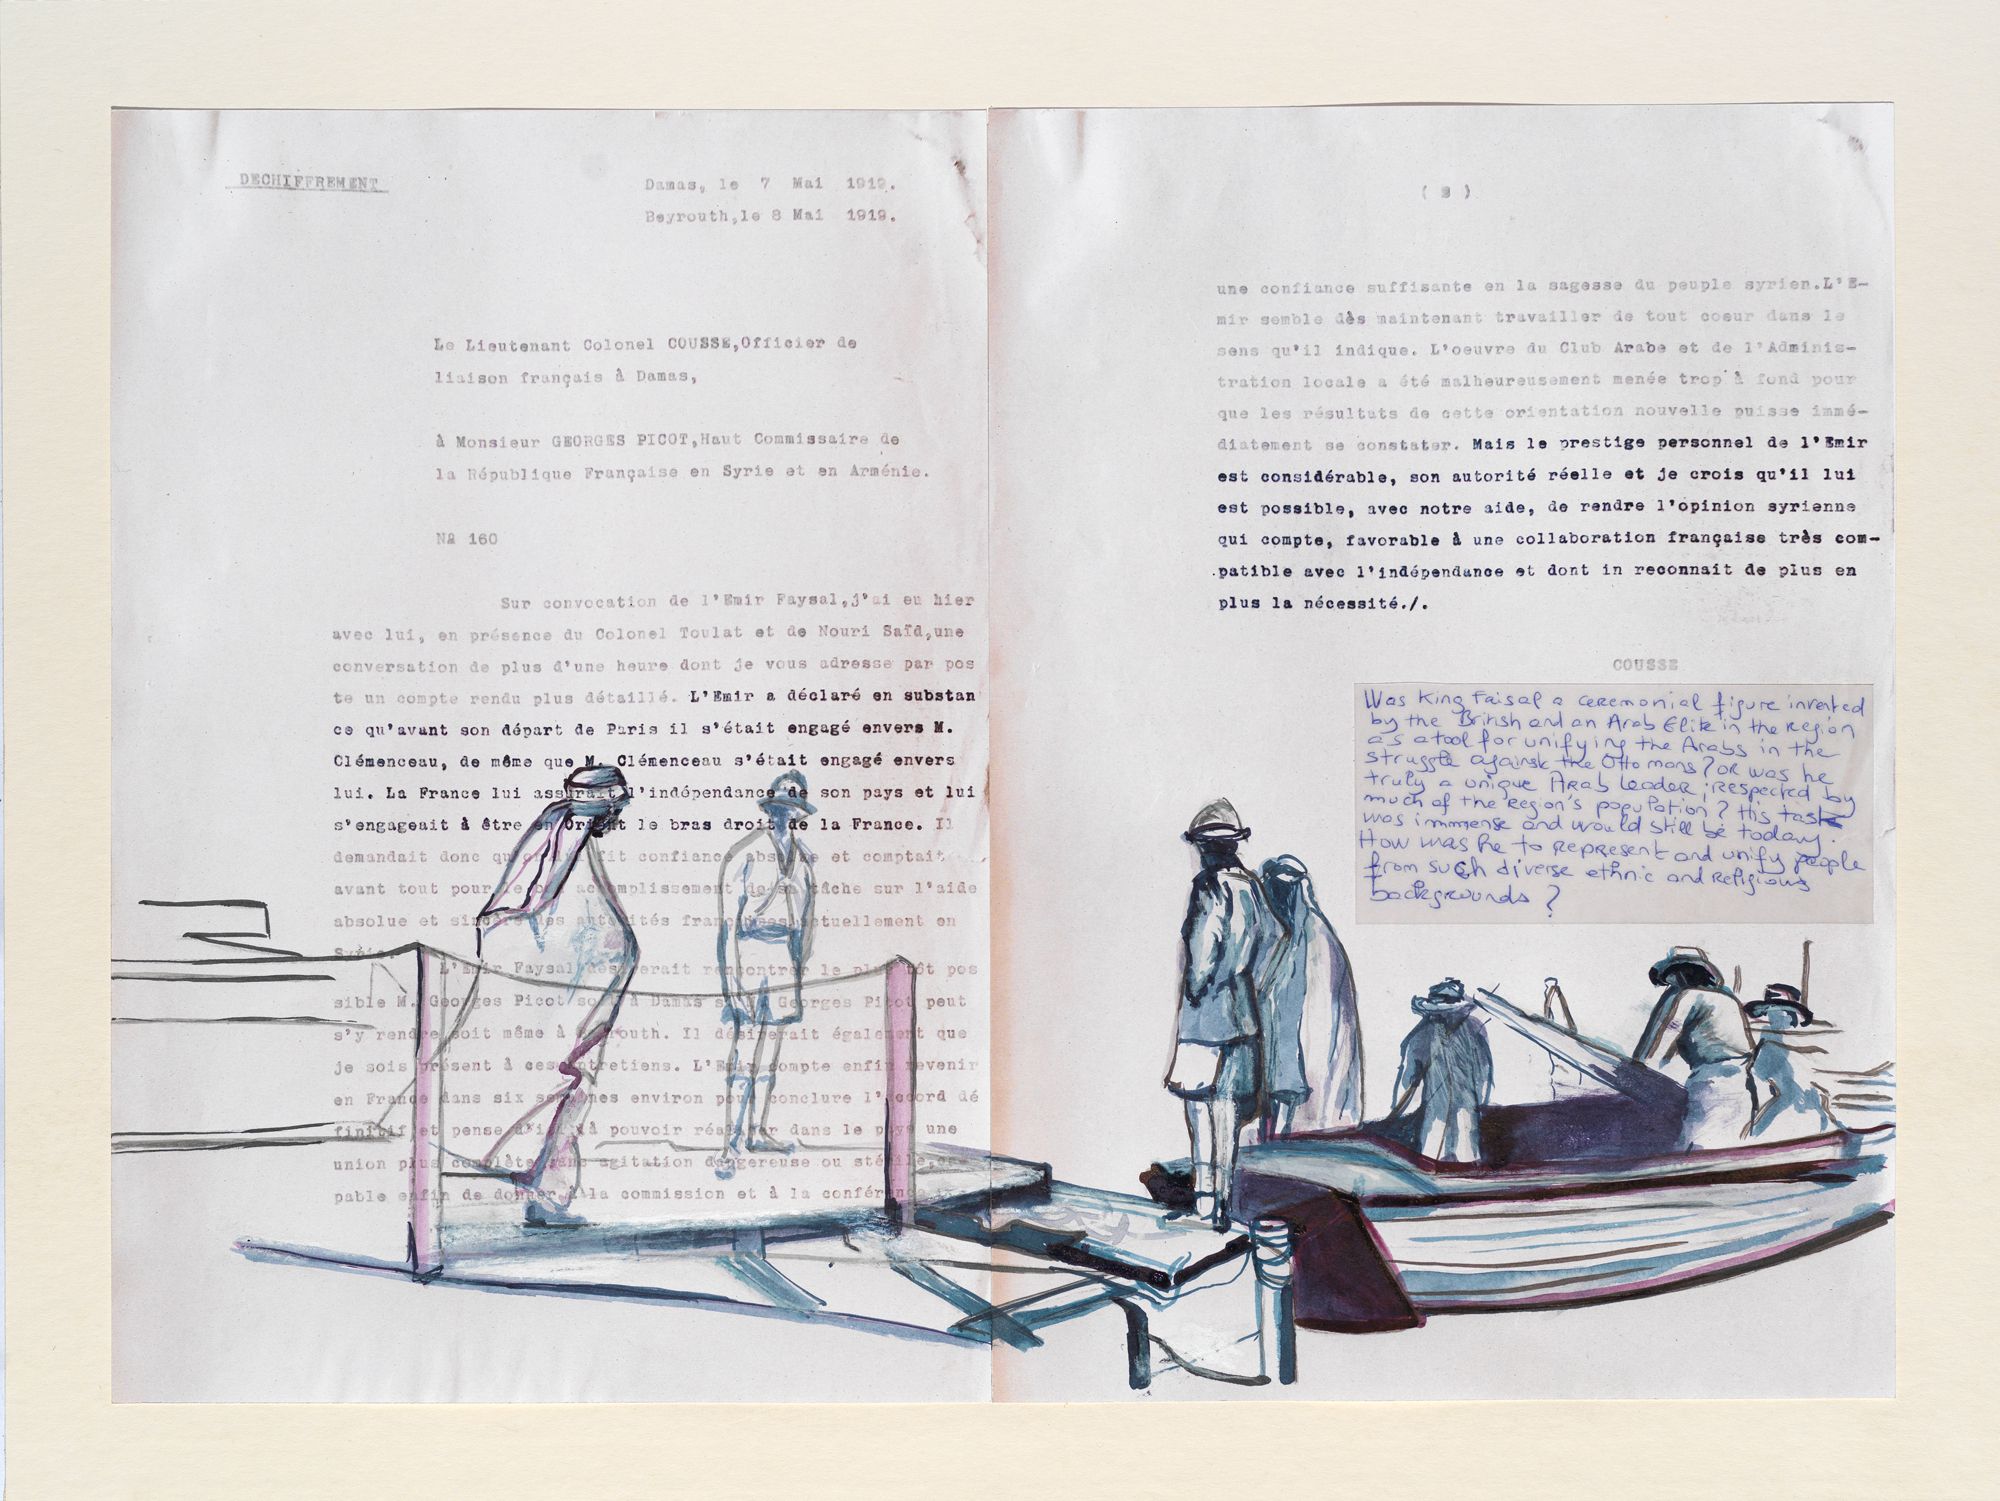 DECHIFFREMENT
Damas, le 7 Mai 1919.
Beyrouth,le 8 Mai 1919.
Le Lieutenant Colonel COUSSE,Officier de
liaison français à Damas,
à Monsieur GEORGES PICOT,Haut Commissaire de
la République Française en Syrie et en Arménie.
Nº 160
Sur convocation de l'Emir Faysal,j'ai eu hier
avec lui, en présence du Colonel Toulat et de Nouri Saïd,une
conversation de plus d'une heure dont je vous adresse par pos
te un compte rendu plus détaillé. L'Emir a déclaré en substan
ce qu'avant son départ de Paris il s'était engagé envers M.
Clémenceau, de même que M. Clémenceau s'était engagé envers
lui. La France lui assurait l'indépendance de son pays et lui
s'engageait à être en Orient le bras droit de la France. Il
demandait donc qu'on lui fit confiance absolue et comptait
avant tout pour le bon accomplissement de sa tâche sur l'aide
absolue et sincère des autorités françaises actuellement en
Syrie.
L'Emir Faysal désirerait rencontrer le plus tôt pos
sible M. Georges Picot soit à Damas si M. Georges Picot peut
s'y rendre soit même à Beyrouth. Il désirerait également que
je sois présent à ces entretiens. L'Emir compte enfin revenir
en France dans six semaines environ pour conclure l'accord dé
finitif et pense d'ici là pouvoir réaliser dans le pays une
union plus complète sans agitation dangereuse ou stérile,ca-
pable enfin de donner à la commission et à la conférence
( 2 )
une confiance suffisante en la sagesse du peuple syrien.L'E-
mir semble dès maintenant travailler de tout coeur dans le
sens qu'il indique. L'oeuvre du Club Arabe et de l'Adminis-
tration locale a été malheureusement menée trop à fond pour
que les résultats de cette orientation nouvelle puisse immé-
diatement se constater. Mais le prestige personnel de l'Emir
est considérable, son autorité réelle et je crois qu'il lui
est possible, avec notre aide, de rendre l'opinion syrienne
qui compte, favorable à une collaboration française très com-
patible avec l'indépendance et dont in reconnait de plus en
plus la nécessité./.
COUSSE
Was King Faisal a ceremonial figure invented
by the British and an Arab Elite in the region
as a tool for unifying the Arabs in the
struggle against the Ottomans? or was he
truly a unique Arab leader; respected by
much of the region's population? His task
was immense and would still be today.
How was he to represent and unify people
from such diverse ethnic and religious
backgrounds?